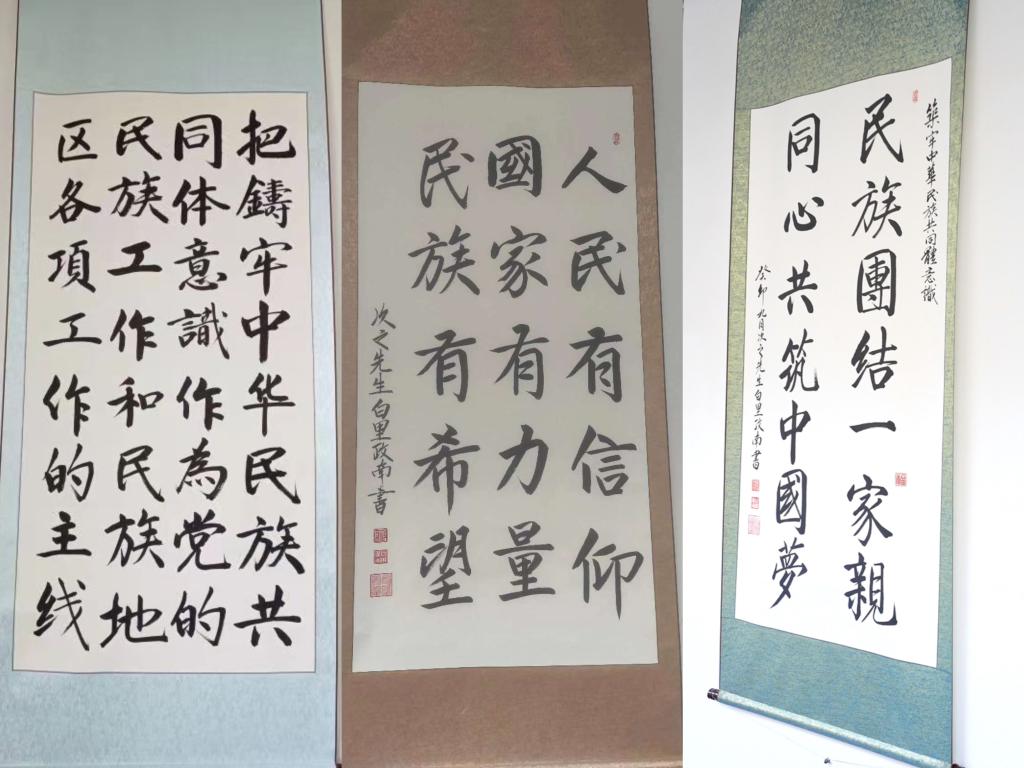 把鑄牢中华民族共
同体意識作為党的
民族工作和民族地
区各項工作的主线
人民有信仰
國家有力量
民族有希望
次之先生白里政南書
築牢中華民族共同體意識
民族團结一家親
同心共筑中國夢
癸卯九月次之先生白里政南書